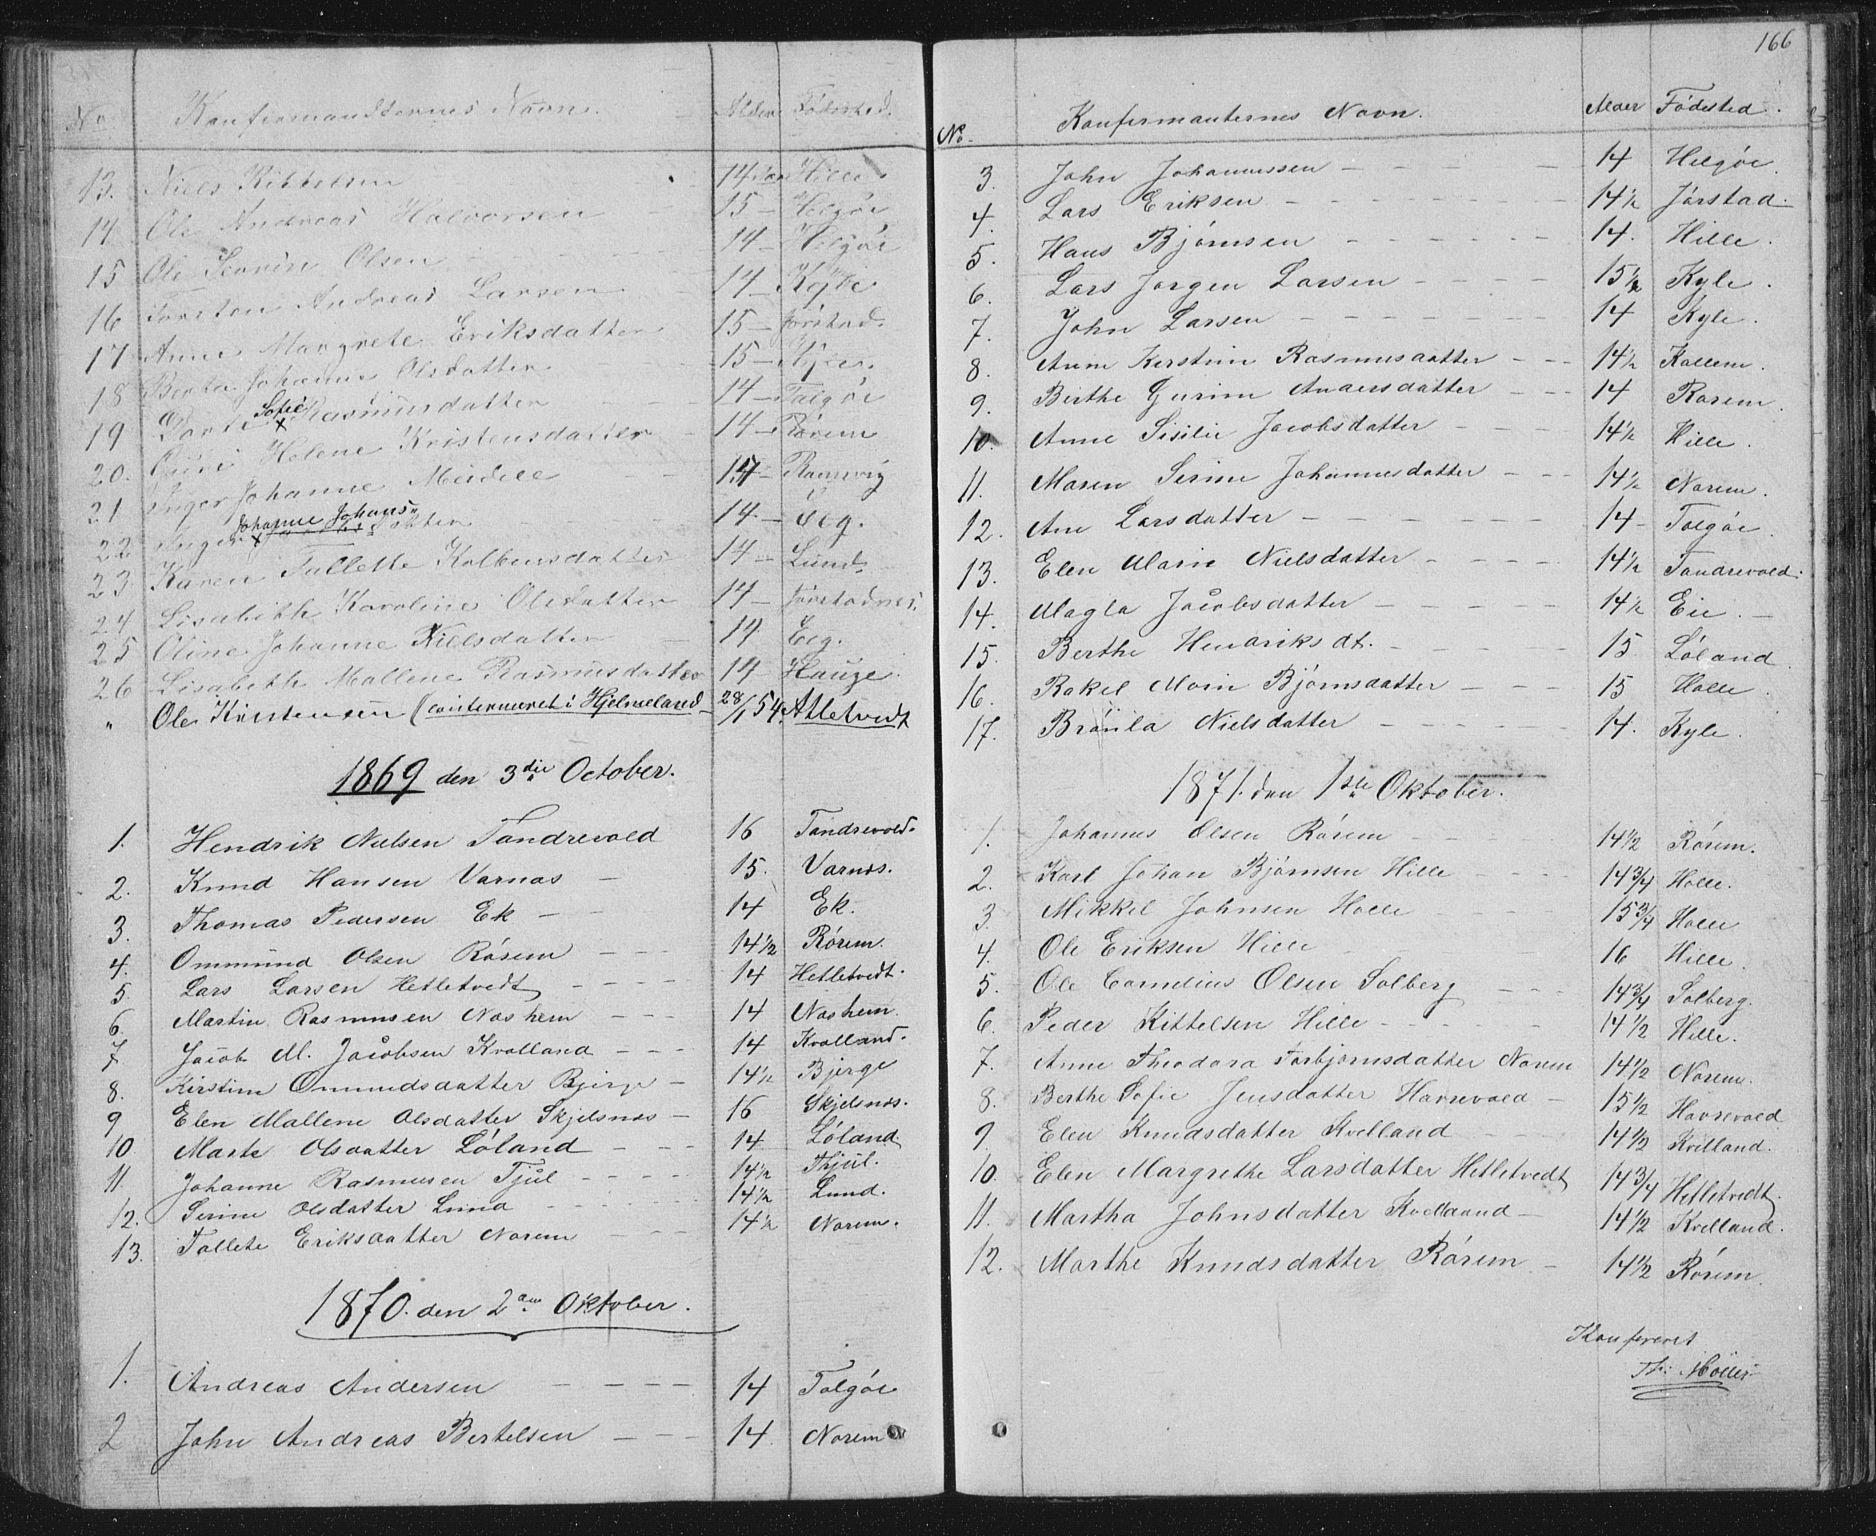 No Konfermandternes Navne. Alder Fødested.
13. Niels Kittelsen 14 Aar Hille.
14 Ole Andreas Halvorsen 15 Helgøe
15 Ole Severin Olsen 14 Helgøe
16 Torsten Andreas Larsen 14 Kyle
17 Anne Margrete Eriksdatter 15 Jørstad.
18 Berta Johanne Olsdatter 15 Kyle.
19 Dorte Sofie Rasmusdatter 14 Talgøe
20. Guri Helene Kristensdatter 14 Rørem
21 Inger Johanne Meidell 14 Ramsvig
22 Inger Johanne Johans datter 14 Eeg.
23 Karen Tallette Kolbensdatter 14 Lund.
24 Lisabeth Karoline Olsdatter 14 Jørstadnes.
25 Oline Johanne Nielsdatter 14 Eeg.
26 Lisabeth Mallene Rasmusdatter 14 Hauge.
" Ole Kristensen (conformeret i Hjelmeland 28/1 54. Atletvedt
1869 den 3die October.
1. Hendrik Nielsen Tandrevold 16 Tandrevold.
2. Knud Hansen Varnas 15. Varnes.
3. Thomas Pedersen Ek 14 Ek.
4. Ommund Olsen Rørem 14½ Rørem.
5. Lars Larsen Hetletvedt 14 Hetletvedt.
6. Martin Rasmusen Nashem 14 Nashem.
7 Jacob M. Jacobsen Kvalland 14 Kvalland.
8. Kirstine Ommundsdatter Bjerge 14½ Bjerge
9 Elen Mallene Olsdatter Skjelsnæs 16 Skjelsnæs.
10 Marte Olsdatter Løland 14 Løland
11. Johanne Rasmusen Tjul 14½ Thjul.
12. Serine Olsdatter Lund 14½ Lund.
13. Tallete Eriksdatter Norem 14½ Norem.
1870. den 2den Oktober.
1. Andreas Andersen 14 Talgøe
2 John Andreas Bertelsen 14. Norem
166
No. Konfermanternes Navn. Alder Fødested.
3. John Johannessen 14 Helgøe
4. Lars Eriksen 14½ Jørstad.
5. Hans Bjørnsen 14. Hille.
6. Lars Jørgen Larsen 15½ Kyle.
7. John Larsen 14 Kyle.
8. Anne Kerstine Rasmusdatter 14½ Kallem.
9. Berthe Gurine Andersdatter 14 Rørem.
10. Anne Sisilie Jacobsdatter 14½ Hille.
11. Maren Serine Johannesdatter 14½ Norem.
12. Ane Larsdatter 14 Talgøe
13. Elen Marie Nielsdatter 14½ Tandrevold.
14. Magla Jacobsdatter 14½ Eie.
15. Berthe Hendriksdt. 15 Løland.
16. Rakel Marie Bjørnsdatter 15 Halle.
17. Brønla Nielsdatter 14. Kyle.
1871. den 1ste Oktober.
1. Johannes Olsen Rørem 14½ Rørem.
2. Karl Johan Bjørnsen Hille 14¾ Halle.
3. Mikkel Johnsen Halle 15¾ Halle
4. Ole Eriksen Hille 16 Hille.
5. Ole Cornelius Olsen Solberg 14¾ Solberg.
6. Peder Kittelsen Hille 14½ Hille.
7. Anne Theodora Torbjørnsdatter Norem 14½ Norem.
8. Berthe Sofie Jensdatter Havrevold 15½ Havrevold
9. Elen Knudsdatter Kvelland 14½ Kvelland.
10. Elen Margrethe Larsdatter Hetletvedt 14¾ Hetletvedt.
11. Martha Johnsdatter Kvelland 14½ Kvelland.
12. Marthe Knudsdatter Rørem 14½ Rørem.
Konfereret
Th: Møller